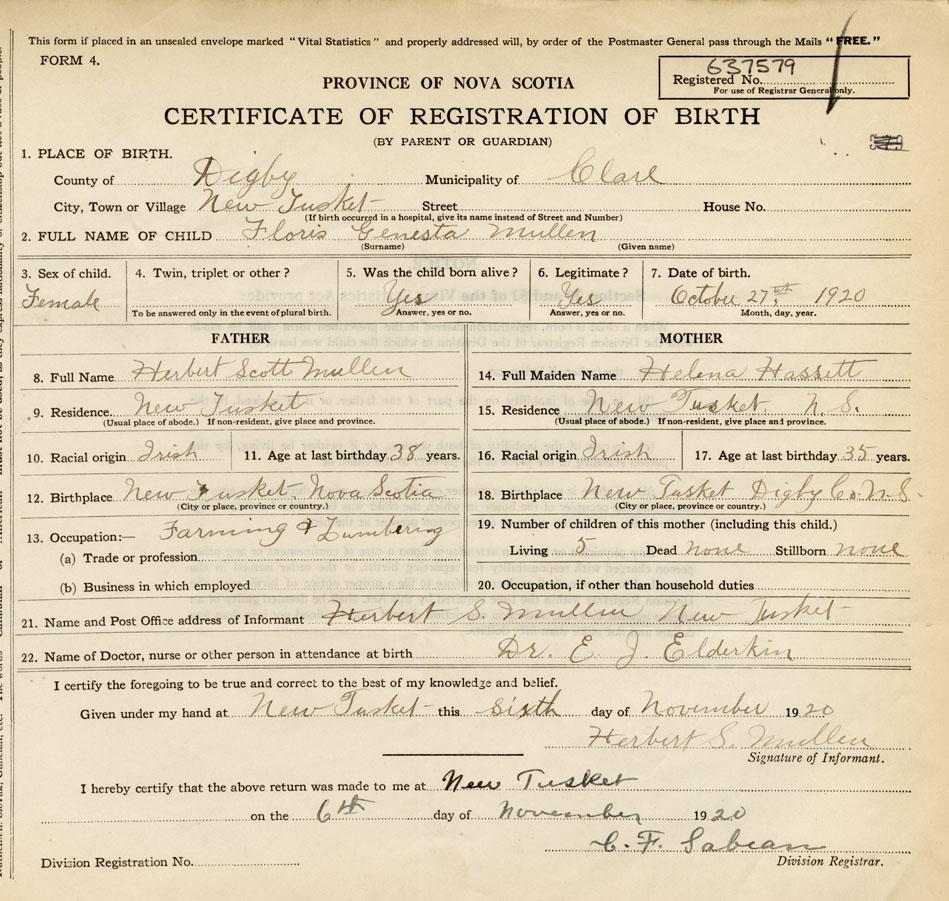 This form if placed in an unsealed envelope marked "Vital Statistics" and properly addressed will, by order of the Postmaster General pass through the Mails "FREE."
FORM 4.
637579
Registered No.
For use of Registrar General only.
PROVINCE OF NOVA SCOTIA
CERTIFICATE OF REGISTRATION OF BIRTH
(BY PARENT OR GUARDIAN)
1. PLACE OF BIRTH.
County of Digby Municipality of Clare
City, Town or Village New Tusket Street House No.
(If birth occurred in a hospital, give its name instead of Street and Number)
2. FULL NAME OF CHILD Floris Genesta Mullen
(Surname) (Given name)
3. Sex of child. 4. Twin, triplet or other? 5. Was the child born alive? 6. Legitimate? 7. Date of birth.
Female Yes Yes October 27th 1920
To be answered only in the event of plural birth. Answer, yes or no. Answer, yes or no. Month, day, year.
FATHER MOTHER
8. Full Name Herbert Scott Mullen 14. Full Maiden Name Helena Hassett
9. Residence. New Tusket 15. Residence New Tusket N.S.
(Usual place of abode.) If non-resident, give place and province. (Usual place of abode.) If non-resident, give place and province.
10. Racial origin Irish 11. Age at last birthday 38 years. 16. Racial origin Irish 17. Age at last birthday 35 years.
12. Birthplace New Tusket Nova Scotia 18. Birthplace New Tusket Digby Co. N.S.
(City or place, province or country.) (City or place, province or country.)
13. Occupation:— Farming & Lumbering 19. Number of children of this mother (including this child.)
(a) Trade or profession Living 5 Dead none Stillborn none
(b) Business in which employed 20. Occupation, if other than household duties
21. Name and Post Office address of Informant Herbert S. Mullen New Tusket
22. Name of Doctor, nurse or other person in attendance at birth Dr. E. J. Elderkin
I certify the foregoing to be true and correct to the best of my knowledge and belief.
Given under my hand at New Tusket this sixth day of November 1920
Herbert S. Mullen
Signature of Informant.
I hereby certify that the above return was made to me at New Tusket
on the 6th day of November 1920
C. F. Sabean
Division Registration No. Division Registrar.